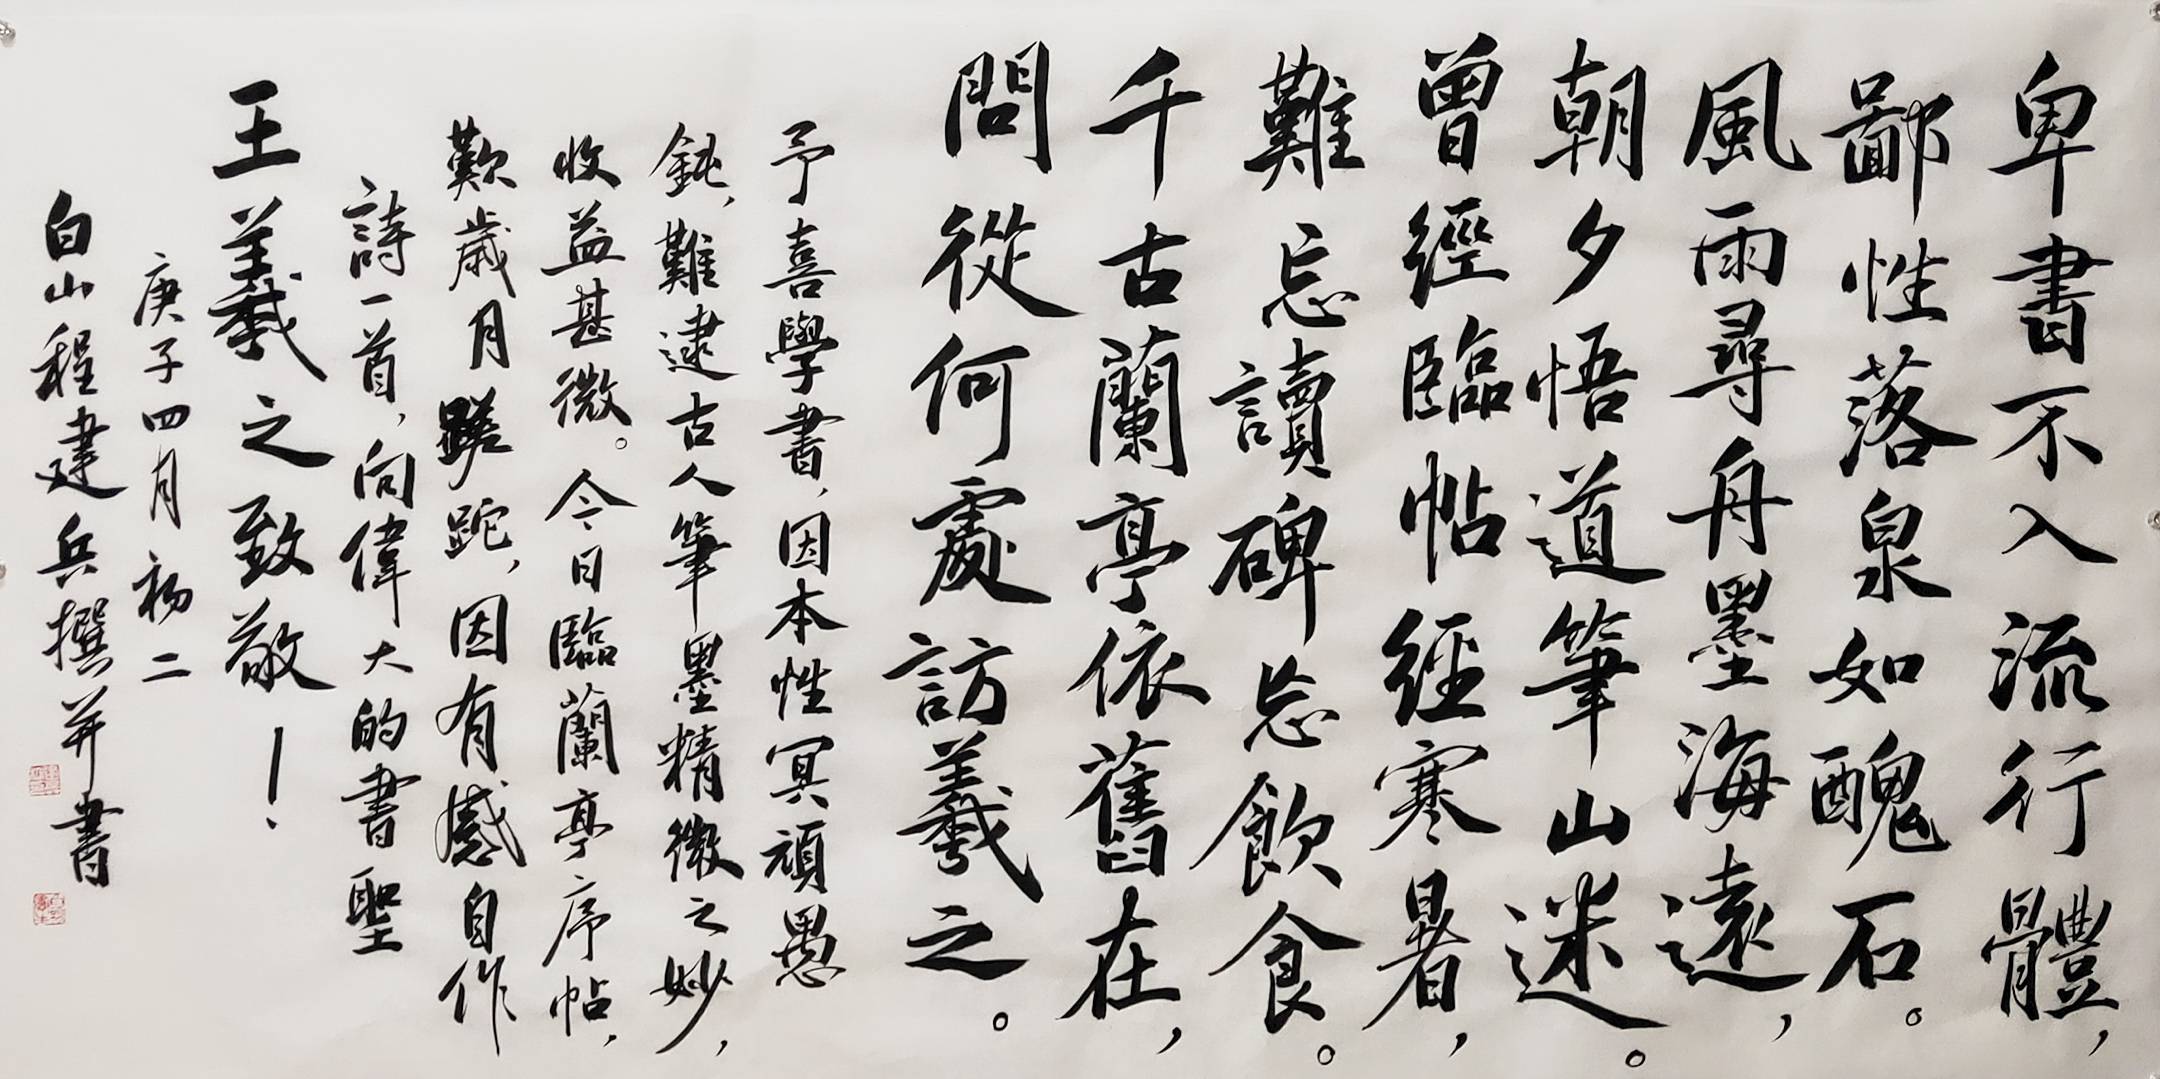 卑書不入流行體，
鄙性落泉如醜石。
風雨尋舟墨海遠，
朝夕悟道筆山迷。
曾經臨帖經寒暑，
難忘讀碑忘飲食。
千古蘭亭依舊在，
問從何處訪羲之。
予喜學書，因本性冥頑愚
鈍，難逮古人筆墨精微之妙，
收益甚微。今日臨蘭亭序帖，
歎歲月蹉跎，因有感自作
詩一首，向偉大的書聖
王羲之致敬！
庚子四月初二
白山程建兵撰并書